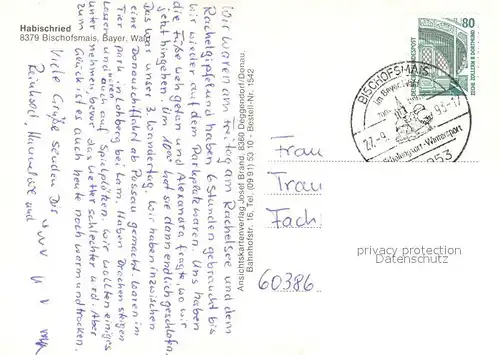 Habischried
8379 Bischofsmais, Bayer. Wald
Wir waren am Freitag am Rachelsee und dem
Rachelgipfel und haben 6 Stunden gebraucht bis
wir wieder auf dem Parkplatz waren. Uns haben
die Füße weh getan und Alexandra fragte, wo wir
jetzt hingehen. Um 10 hat sie dann endlich geschlafen.
Das war unser 3. Wandertag. Wir haben inzwischen
eine Donauschifffahrt ab Passau gemacht, waren im
Tierpark in Lohberg bei Lam. Haben Drachen steigen
lassen und waren auch auf Spielplätzen. Wir wollten einiges
unternehmen, bevor das Wetter schlechter wird. Aber
zum Glück ist es auch heute noch warm und trocken.
Viele Grüße senden Dir
Reinhard, Hannelore und
Ansichtskartenverlag Josef Brandl, 8360 Deggendorf/Donau,
Bahnhofstr. 16, Tel. (09 91) 53 10 · Bestell-Nr. 1542
80
DEUTSCHE BUNDESPOST
ZECHE ZOLLERN II DORTMUND
BISCHOFSMAIS
im Bayer. Wald
27.-9.
93-17
Erholungsort-Wintersport
Frau
Frau
Fach
60386
privacy protection
Datenschutz